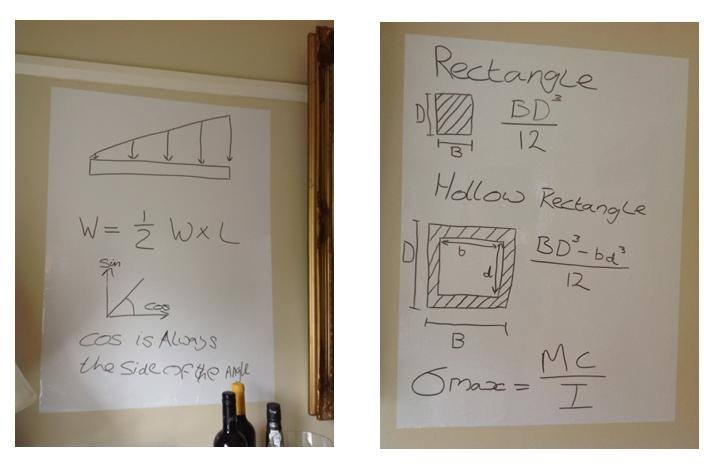 W = 1/2 W x L
Sin
cos
cos is Always
the side of the Angle
Rectangle
D
B
BD³/12
Hollow Rectangle
D
b
d
B
BD³-bd³/12
σmax = MC/I